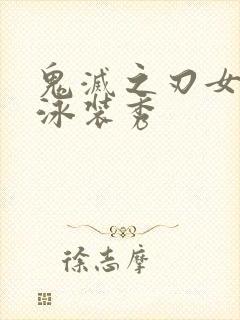 鬼滅之刃女
泳裝秀
徐志摩